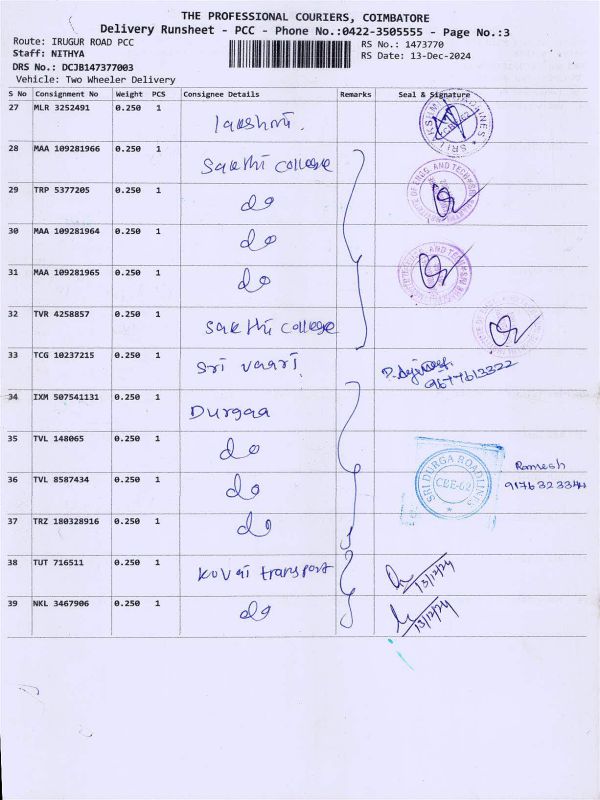 THE PROFESSIONAL COURIERS, COIMBATORE
Delivery Runsheet - PCC - Phone No.:0422-3505555 - Page No.:3
Route: IRUGUR ROAD PCC
RS No.: 1473770
Staff: NITHYA
RS Date: 13-Dec-2024
DRS No.: DCJB147377003
Vehicle: Two Wheeler Delivery
S No Consignment No Weight PCS Consignee Details Remarks Seal & Signature
27 MLR 3252491 0.250 1 lakshmi.
28 MAA 109281966 0.250 1 Sakthi college
29 TRP 5377205 0.250 1 do
30 MAA 109281964 0.250 1 do
31 MAA 109281965 0.250 1 do
32 TVR 4258857 0.250 1 Sakthi college
33 TCG 10237215 0.250 1 Sri vaari 9677613322
34 IXM 507541131 0.250 1 Durgaa
35 TVL 148065 0.250 1 do
SRI DURGA ROADLINES
CBE-62
Ramesh
36 TVL 8587434 0.250 1 do
37 TRZ 180328916 0.250 1 do
38 TUT 716511 0.250 1 kovai transport 13/12/24
39 NKL 3467906 0.250 1 do 13/12/24